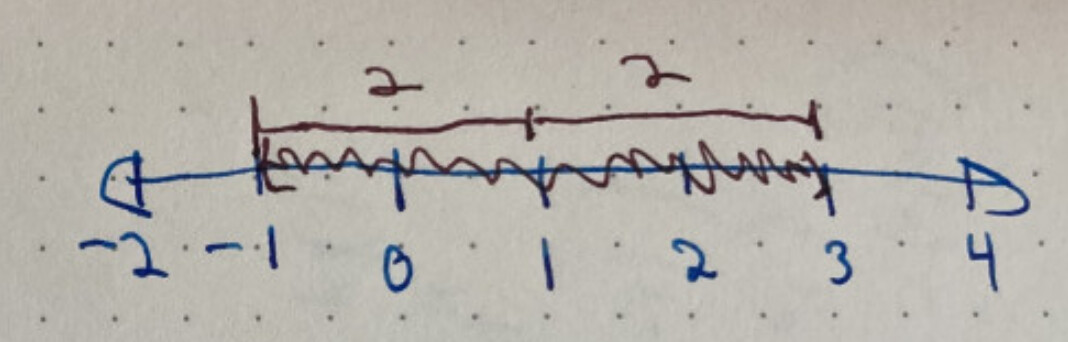 2 2
-2 -1 0 1 2 3 4